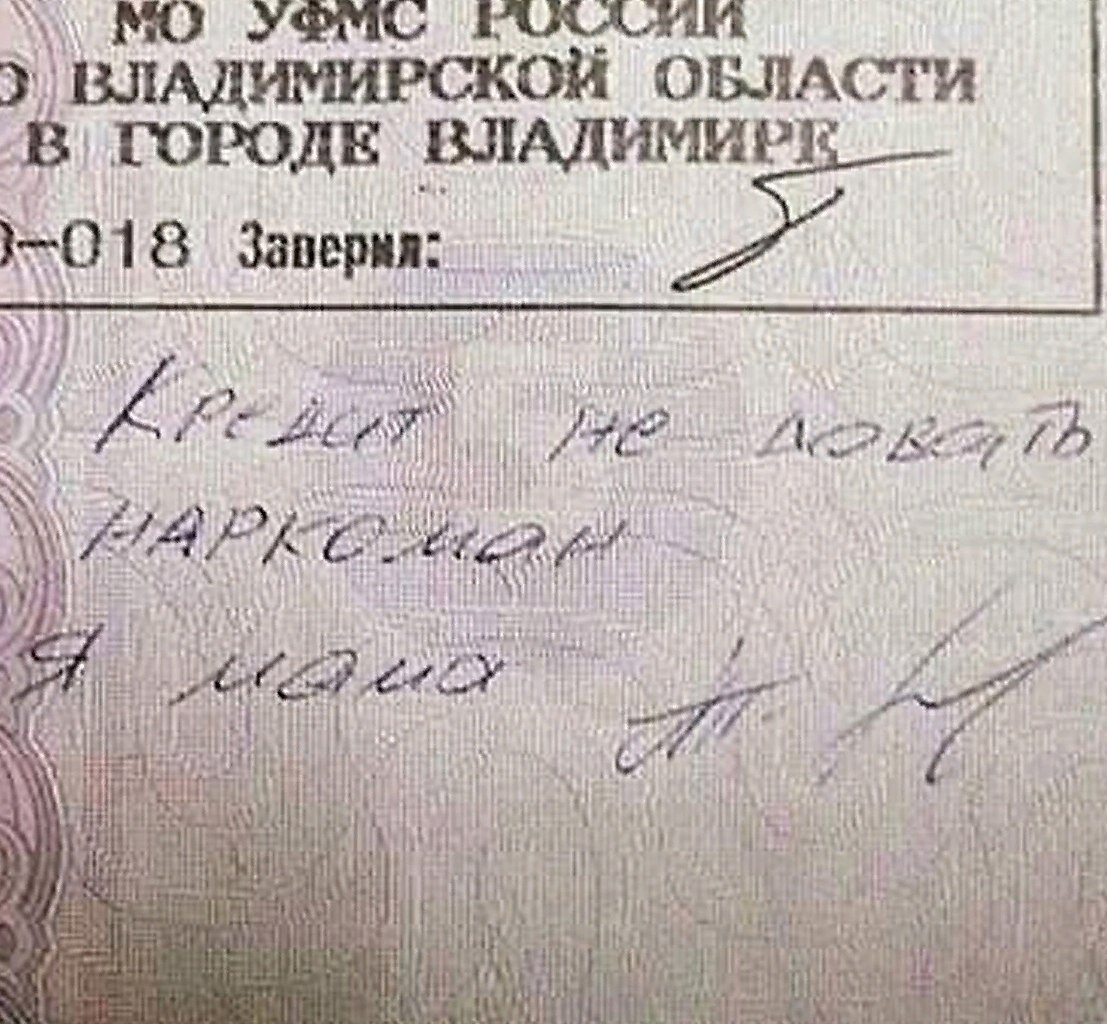 МО УФМС РОССИИ
О ВЛАДИМИРСКОЙ ОБЛАСТИ
В ГОРОДЕ ВЛАДИМИРЕ
0-018 Заверил:
Кредит не довать
НАРКОман
Я мама